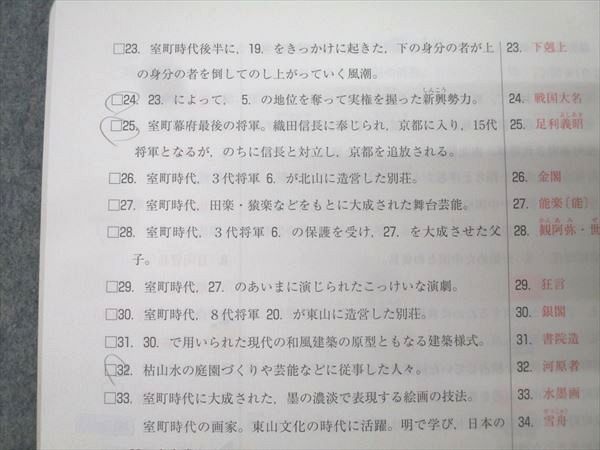 □23. 室町時代後半に，19. をきっかけに起きた，下の身分の者が上 23. 下剋上
の身分の者を倒してのし上がっていく風潮。
□24. 23. によって，5. の地位を奪って実権を握った新興勢力。 24. 戦国大名
しんこう
□25. 室町幕府最後の将軍。織田信長に奉じられ，京都に入り，15代 25. 足利義昭
よしあき
将軍となるが，のちに信長と対立し，京都を追放される。
□26. 室町時代，3代将軍 6. が北山に造営した別荘。 26. 金閣
□27. 室町時代，田楽・猿楽などをもとに大成された舞台芸能。 27. 能楽〔能〕
□28. 室町時代，3代将軍 6. の保護を受け，27. を大成させた父 28. 観阿弥・世
かんあみ ぜ
子。
□29. 室町時代，27. のあいまに演じられたこっけいな演劇。 29. 狂言
□30. 室町時代，8代将軍 20. が東山に造営した別荘。 30. 銀閣
□31. 30. で用いられた現代の和風建築の原型ともなる建築様式。 31. 書院造
□32. 枯山水の庭園づくりや芸能などに従事した人々。 32. 河原者
□33. 室町時代に大成された，墨の濃淡で表現する絵画の技法。 33. 水墨画
室町時代の画家。東山文化の時代に活躍。明で学び，日本の 34. 雪舟
せっしゅう